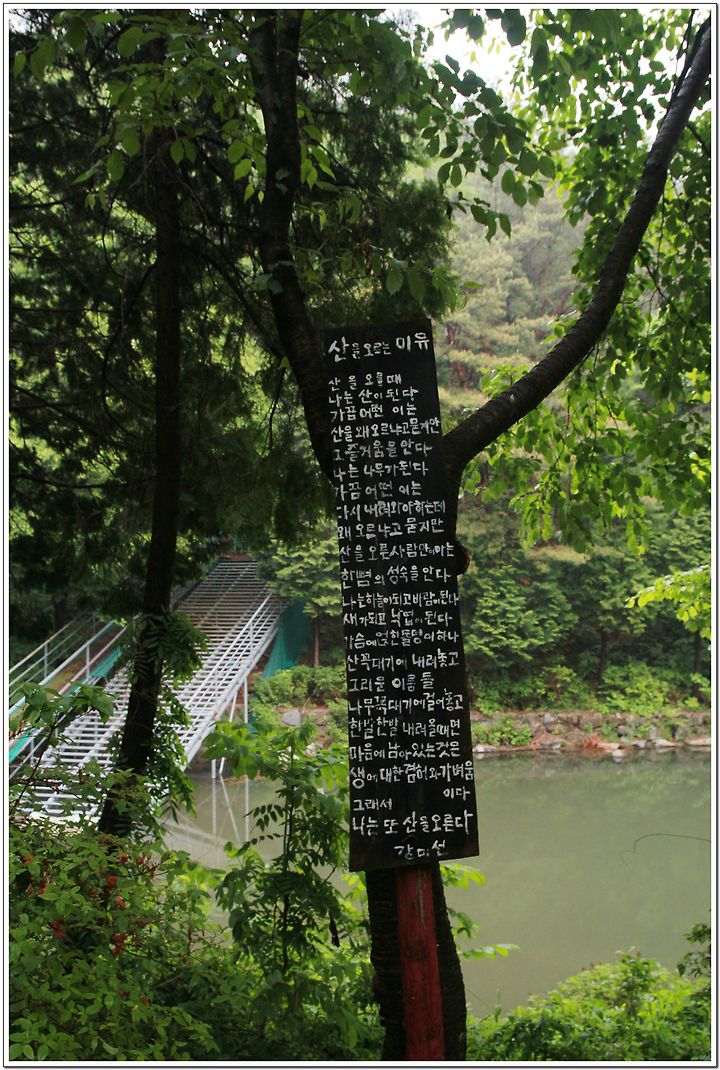 산을 오르는 이유
산을 오를 때
나는 산이 된다
가끔 어떤 이는
산을 왜 오르냐고 묻지만
그 즐거움을 안다
나는 나무가 된다
가끔 어떤 이는
다시 내려와야 하는데
왜 오르냐고 묻지만
산을 오른 사람만이 아는
한 뼘의 성숙을 안다
나는 하늘이 되고 바람이 된다
새가 되고 낙엽이 된다
가슴에 얹힌 돌덩이 하나
산꼭대기에 내려놓고
그리운 이름 들
나무꼭대기에 걸어놓고
한발 한발 내려올때면
마음에 남아 있는 것은
생에 대한 겸허와 가벼움
이다
그래서
나는 또 산을 오른다
강미선